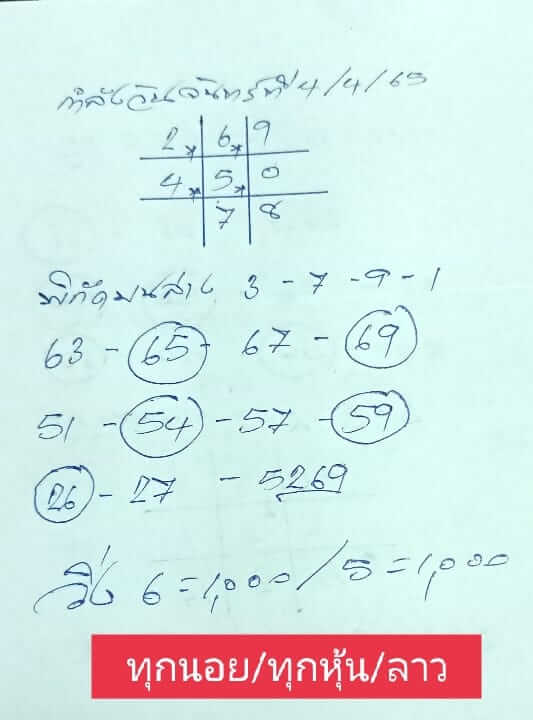 กำลังวันจันทร์ที่ 4/4/65
2 6 9
4 5 0
7 8
พิกัดบนล่าง 3 - 7 - 9 - 1
63 - 65 - 67 - 69
51 - 54 - 57 - 59
26 - 27 - 5269
วิ่ง 6 = 1,000 / 5 = 1,000
ทุกนอย/ทุกหุ้น/ลาว